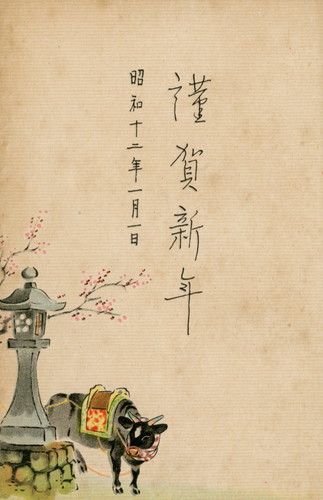 謹賀新年
昭和十二年一月一日